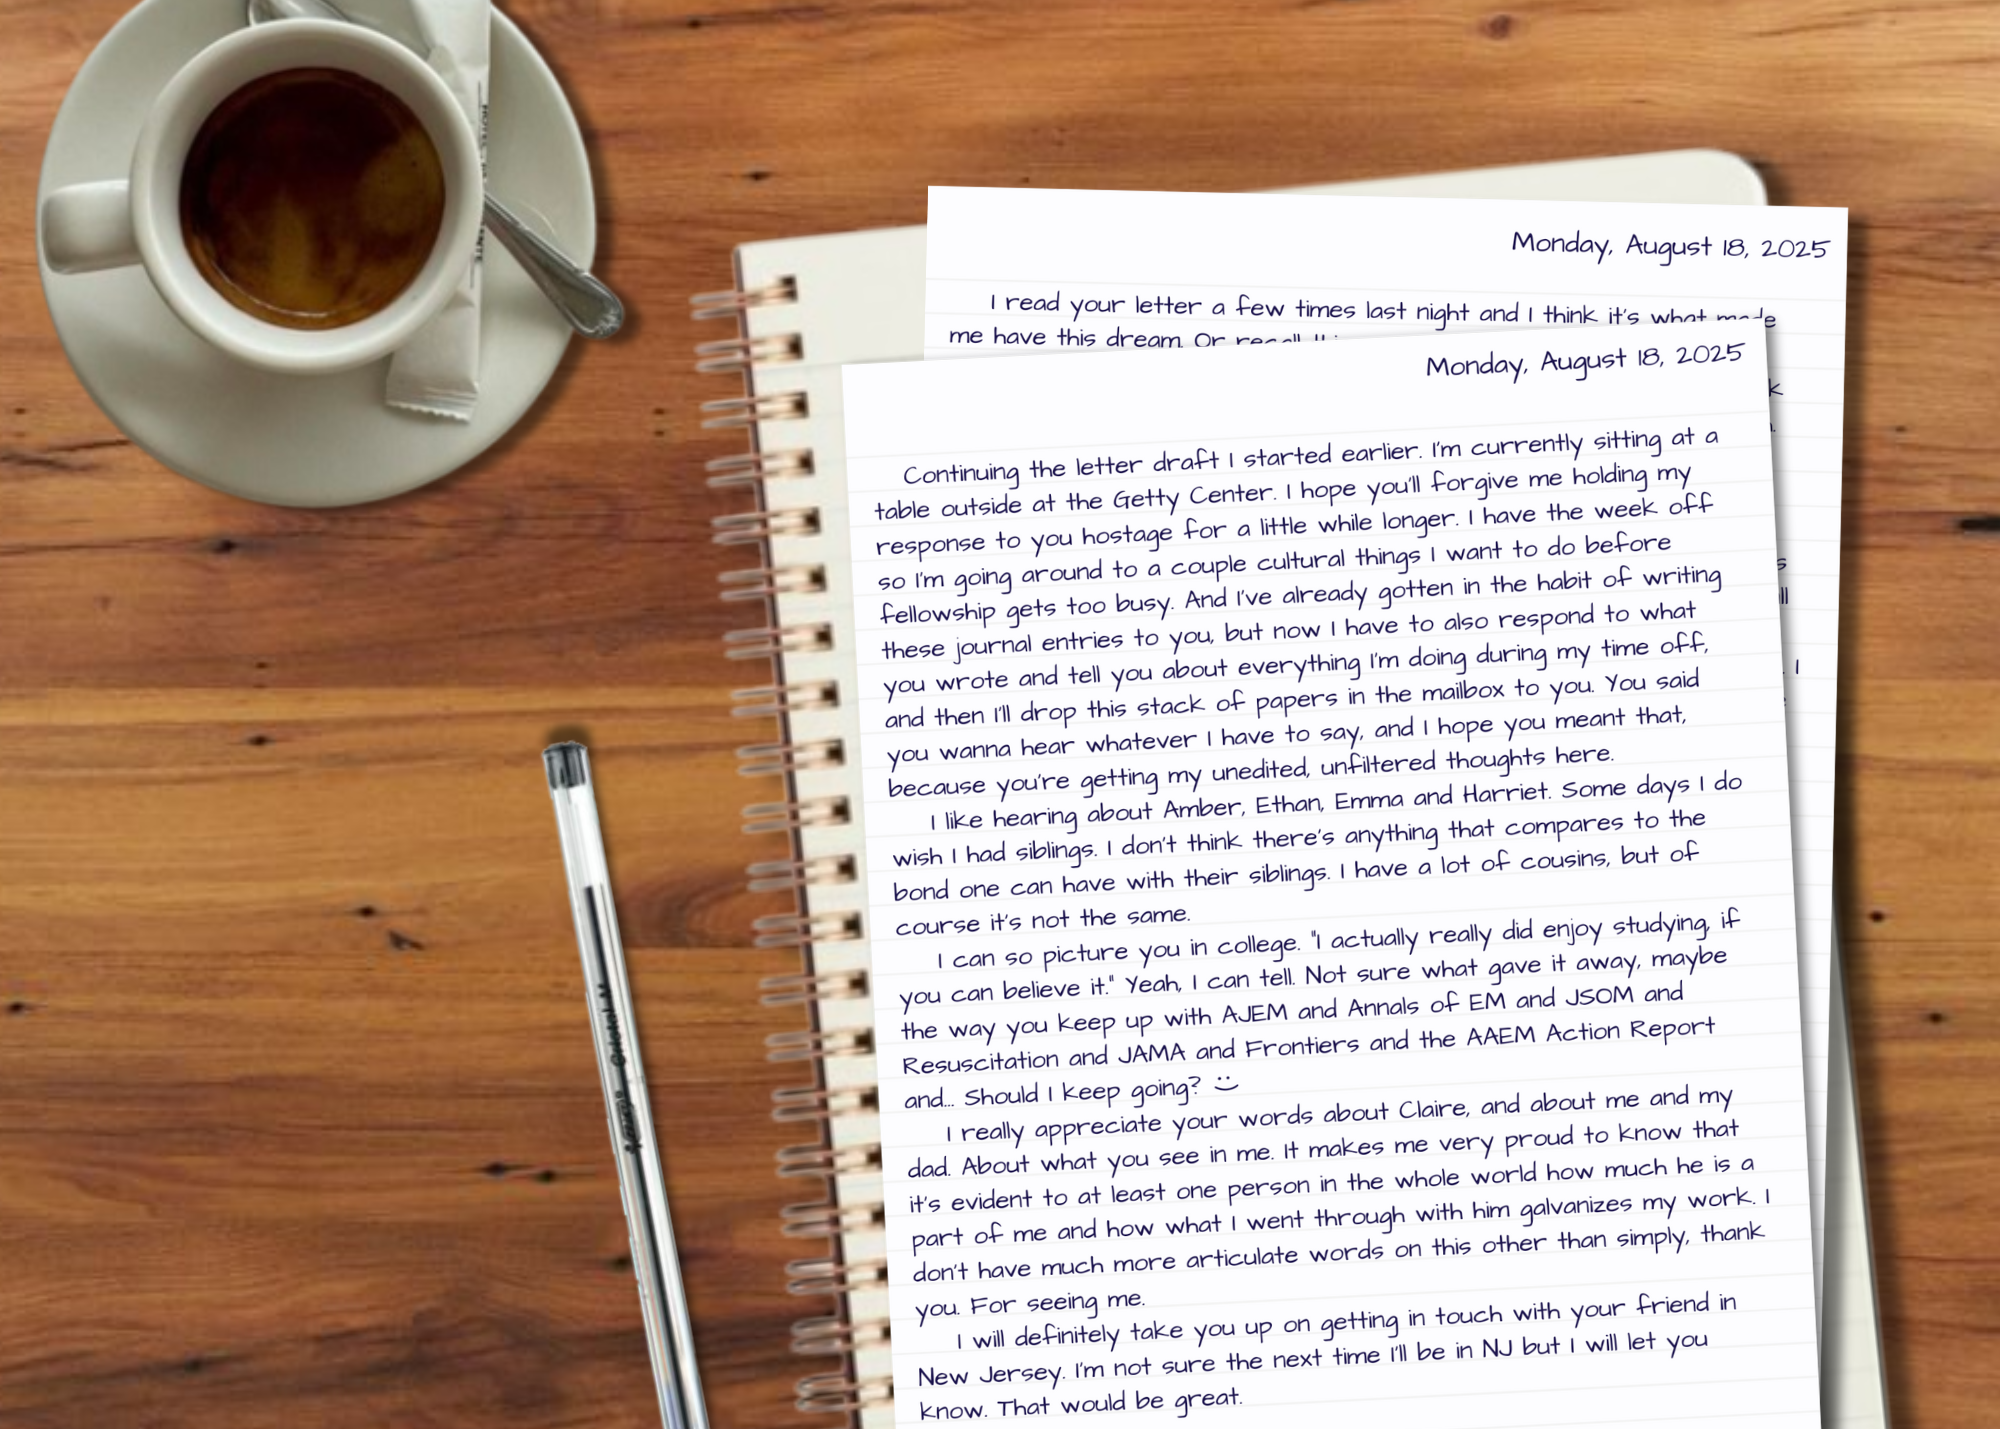 Monday, August 18, 2025
I read your letter a few times last night and I think it's what made
me have this dream. Or recall
Monday, August 18, 2025
Continuing the letter draft I started earlier. I'm currently sitting at a
table outside at the Getty Center. I hope you'll forgive me holding my
response to you hostage for a little while longer. I have the week off
so I'm going around to a couple cultural things I want to do before
fellowship gets too busy. And I've already gotten in the habit of writing
these journal entries to you, but now I have to also respond to what
you wrote and tell you about everything I'm doing during my time off,
and then I'll drop this stack of papers in the mailbox to you. You said
you wanna hear whatever I have to say, and I hope you meant that,
because you're getting my unedited, unfiltered thoughts here.
I like hearing about Amber, Ethan, Emma and Harriet. Some days I do
wish I had siblings. I don't think there's anything that compares to the
bond one can have with their siblings. I have a lot of cousins, but of
course it's not the same.
I can so picture you in college. "I actually really did enjoy studying, if
you can believe it." Yeah, I can tell. Not sure what gave it away, maybe
the way you keep up with AJEM and Annals of EM and JSOM and
Resuscitation and JAMA and Frontiers and the AAEM Action Report
and... Should I keep going? :)
I really appreciate your words about Claire, and about me and my
dad. About what you see in me. It makes me very proud to know that
it's evident to at least one person in the whole world how much he is a
part of me and how what I went through with him galvanizes my work. I
don't have much more articulate words on this other than simply, thank
you. For seeing me.
I will definitely take you up on getting in touch with your friend in
New Jersey. I'm not sure the next time I'll be in NJ but I will let you
know. That would be great.